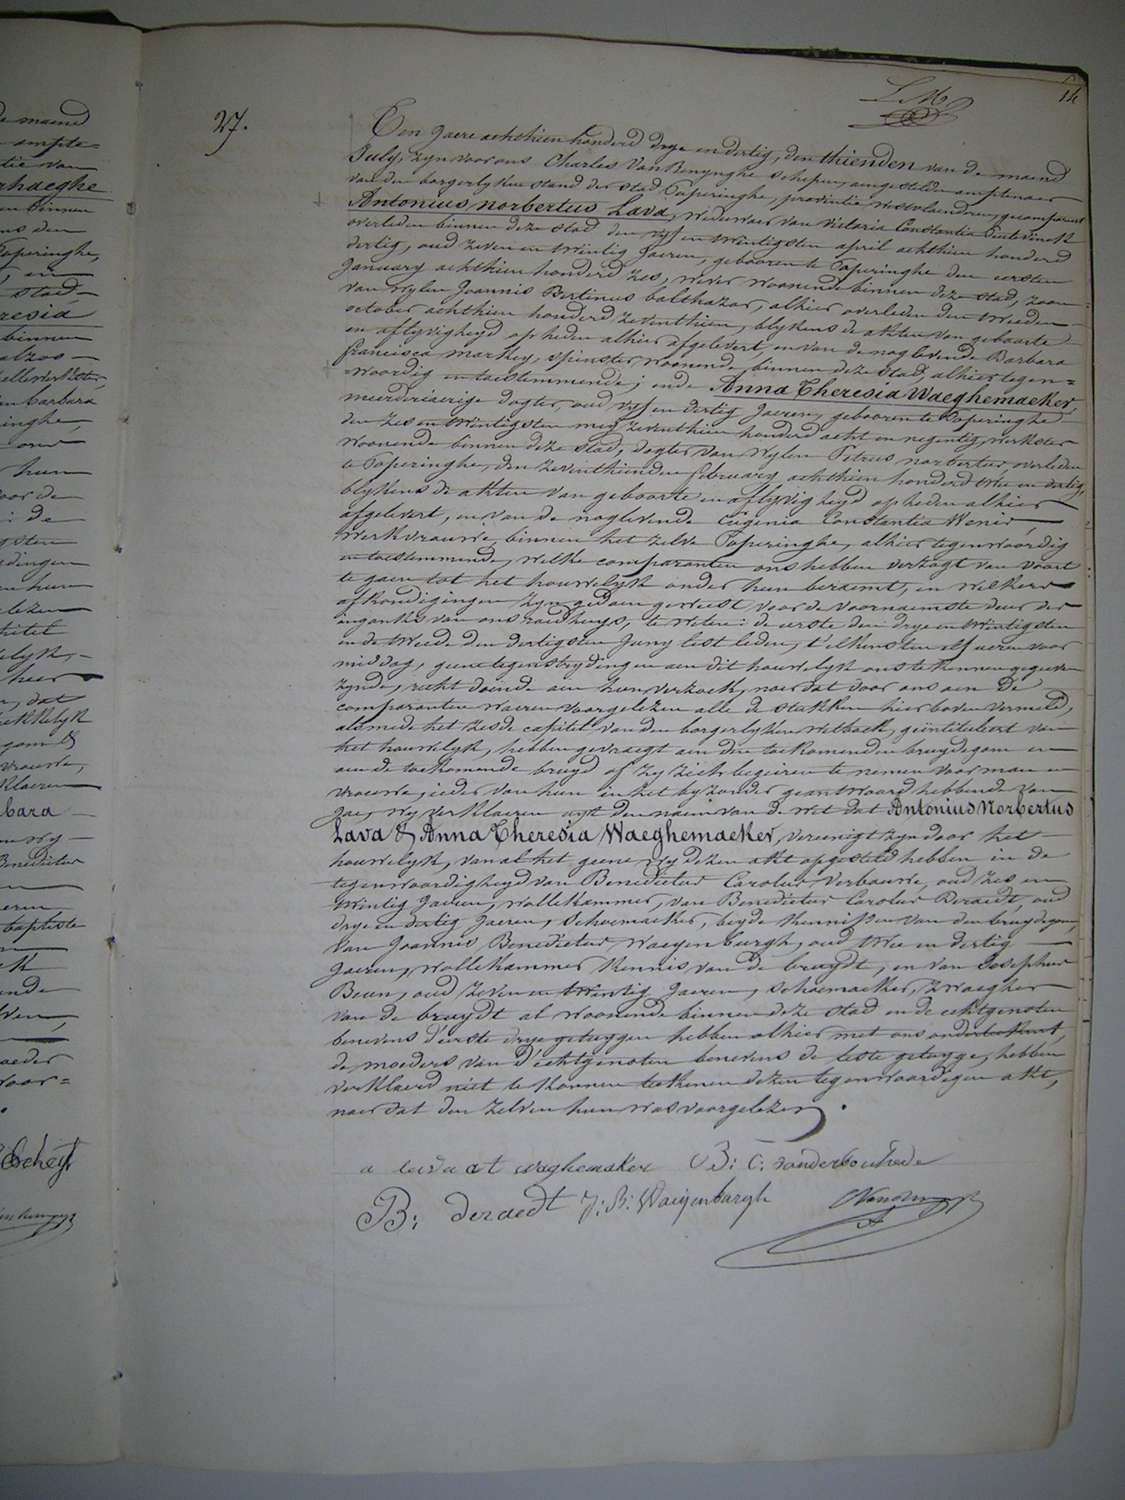 de maend
ampte=
tie van
rhaeghe
en binnen
ons den
Poperinghe,
, en
stad,
resia
binnen
alzoo
tellewerkster,
van barbara
inghe,
over
hun
voor de
: de
gsten
dingen
en hun
elezen
titel
elyk,
heer
n, dat
trekkelyk
gom &
vrouwe,
klaeren
bara
en wy
Benedictus
baptiste
ck
ende
lven,
moeder
voor=
Scheyt
14
27.
Ten Jaere achthien honderd drye en dertig, den thienden van de maend
July, zyn voor ons Charles Van Renynghe schepen, aengestelden amptenaer
van den borgerlyken stand der stad Poperinghe, provintie Westvlaendren, gecompareert
Antonius norbertus Lava, weduwaer van Victoria Constantia
overleden binnen deze stad den vyf en twintigsten april achthien honderd
dertig, oud zeven en twintig Jaeren, gebooren te Poperinghe den eersten
January achthien honderd zes, wever woonende binnen deze stad, zoon
van wylen Joannis Bertinus balthazar, alhier overleden den tweeden
october achthien honderd zeventhien, blykens de akten van geboorte
en aflyvigheyd op heden alhier afgelevert, en van de naglevende Barbara
francisca markey, spinster, woonende binnen deze stad, alhier tegen=
woordig en toestemmende; ende Anna Theresia Waeghemaeker,
meerderjaerige dogter, oud vyf en dertig Jaeren, gebooren te Poperinghe
den zes en twintigsten mey zeventhien honderd acht en negentig, werkster
woonende binnen deze stad, dogter van wylen Petrus norbertus, overleden
te Poperinghe, den zeventhienden february achthien honderd twee en dertig,
blykens de akten van geboorte en aflyvigheyd op heden alhier
afgelevert, en van de naglevende Eugenia Constantia
werkvrouwe, binnen het zelve Poperinghe, alhier tegenwoordig
en toestemmende, welke comparanten ons hebben verzogt van voort
te gaen tot het houwelyk onder hun beraemt, en welkers
afkondigingen zyn gedaen geweest voor de voornaemste deur der
ingank van ons raedhuys, te weten: de eerste den drye en twintigsten
en de tweede den dertigsten Juny lest leden, t'elkensten elf ueren voor
middag, geene tegenstrydingen aen dit houwelyk ons te kennen gegeven
zynde, recht doende aen hun verzoek, naer dat door ons aen de
comparanten waeren voorgelezen alle de stukken hier boven vermeld,
als mede het zesde capitel van den borgerlyken wetboek, geïntituleert van
het houwelyk, hebben gevraegt aen den toekomenden bruydegom en
aen de toekomende bruyd of zy zich begeiren te nemen voor man en
vrouwe, ieder van hun in het byzonder geantwoord hebbende van
Jae, wy verklaeren uyt den naem van de wet dat Antonius Norbertus
Lava & Anna Theresia Waeghemaeker, vereenigt zyn door het
houwelyk, van al het geene wy dezen akt opgesteld hebben in de
tegenwoordigheyd van Benedictus Carolus Verbauwe, oud zes en
twintig Jaeren, wollekammer, van Benedictus Carolus Deraedt, oud
drye en dertig Jaeren, schoemaeker, beyde kennissen van den bruydegom,
van Joannis Benedictus Waeyenburgh, oud twee en dertig
Jaeren, wollekammer kennis van de bruydt, en van Josephus
Beun, oud zeven en twintig Jaeren, schoemaeker, Zwaegher
van de bruydt al woonende binnen deze stad en de echtgenoten
benevens d'eerste drye getuygen hebben alhier met ons onderteekent,
de moeders van d'echtgenoten benevens de leste getuyge, hebben
verklaerd niet te konnen teekenen dezen tegenwoordigen akt,
naer dat den zelven hun was voorgelezen.
a lava at waghemaker B: C: vanderbouhede
B: deraedt J: B: Waeyenburgh